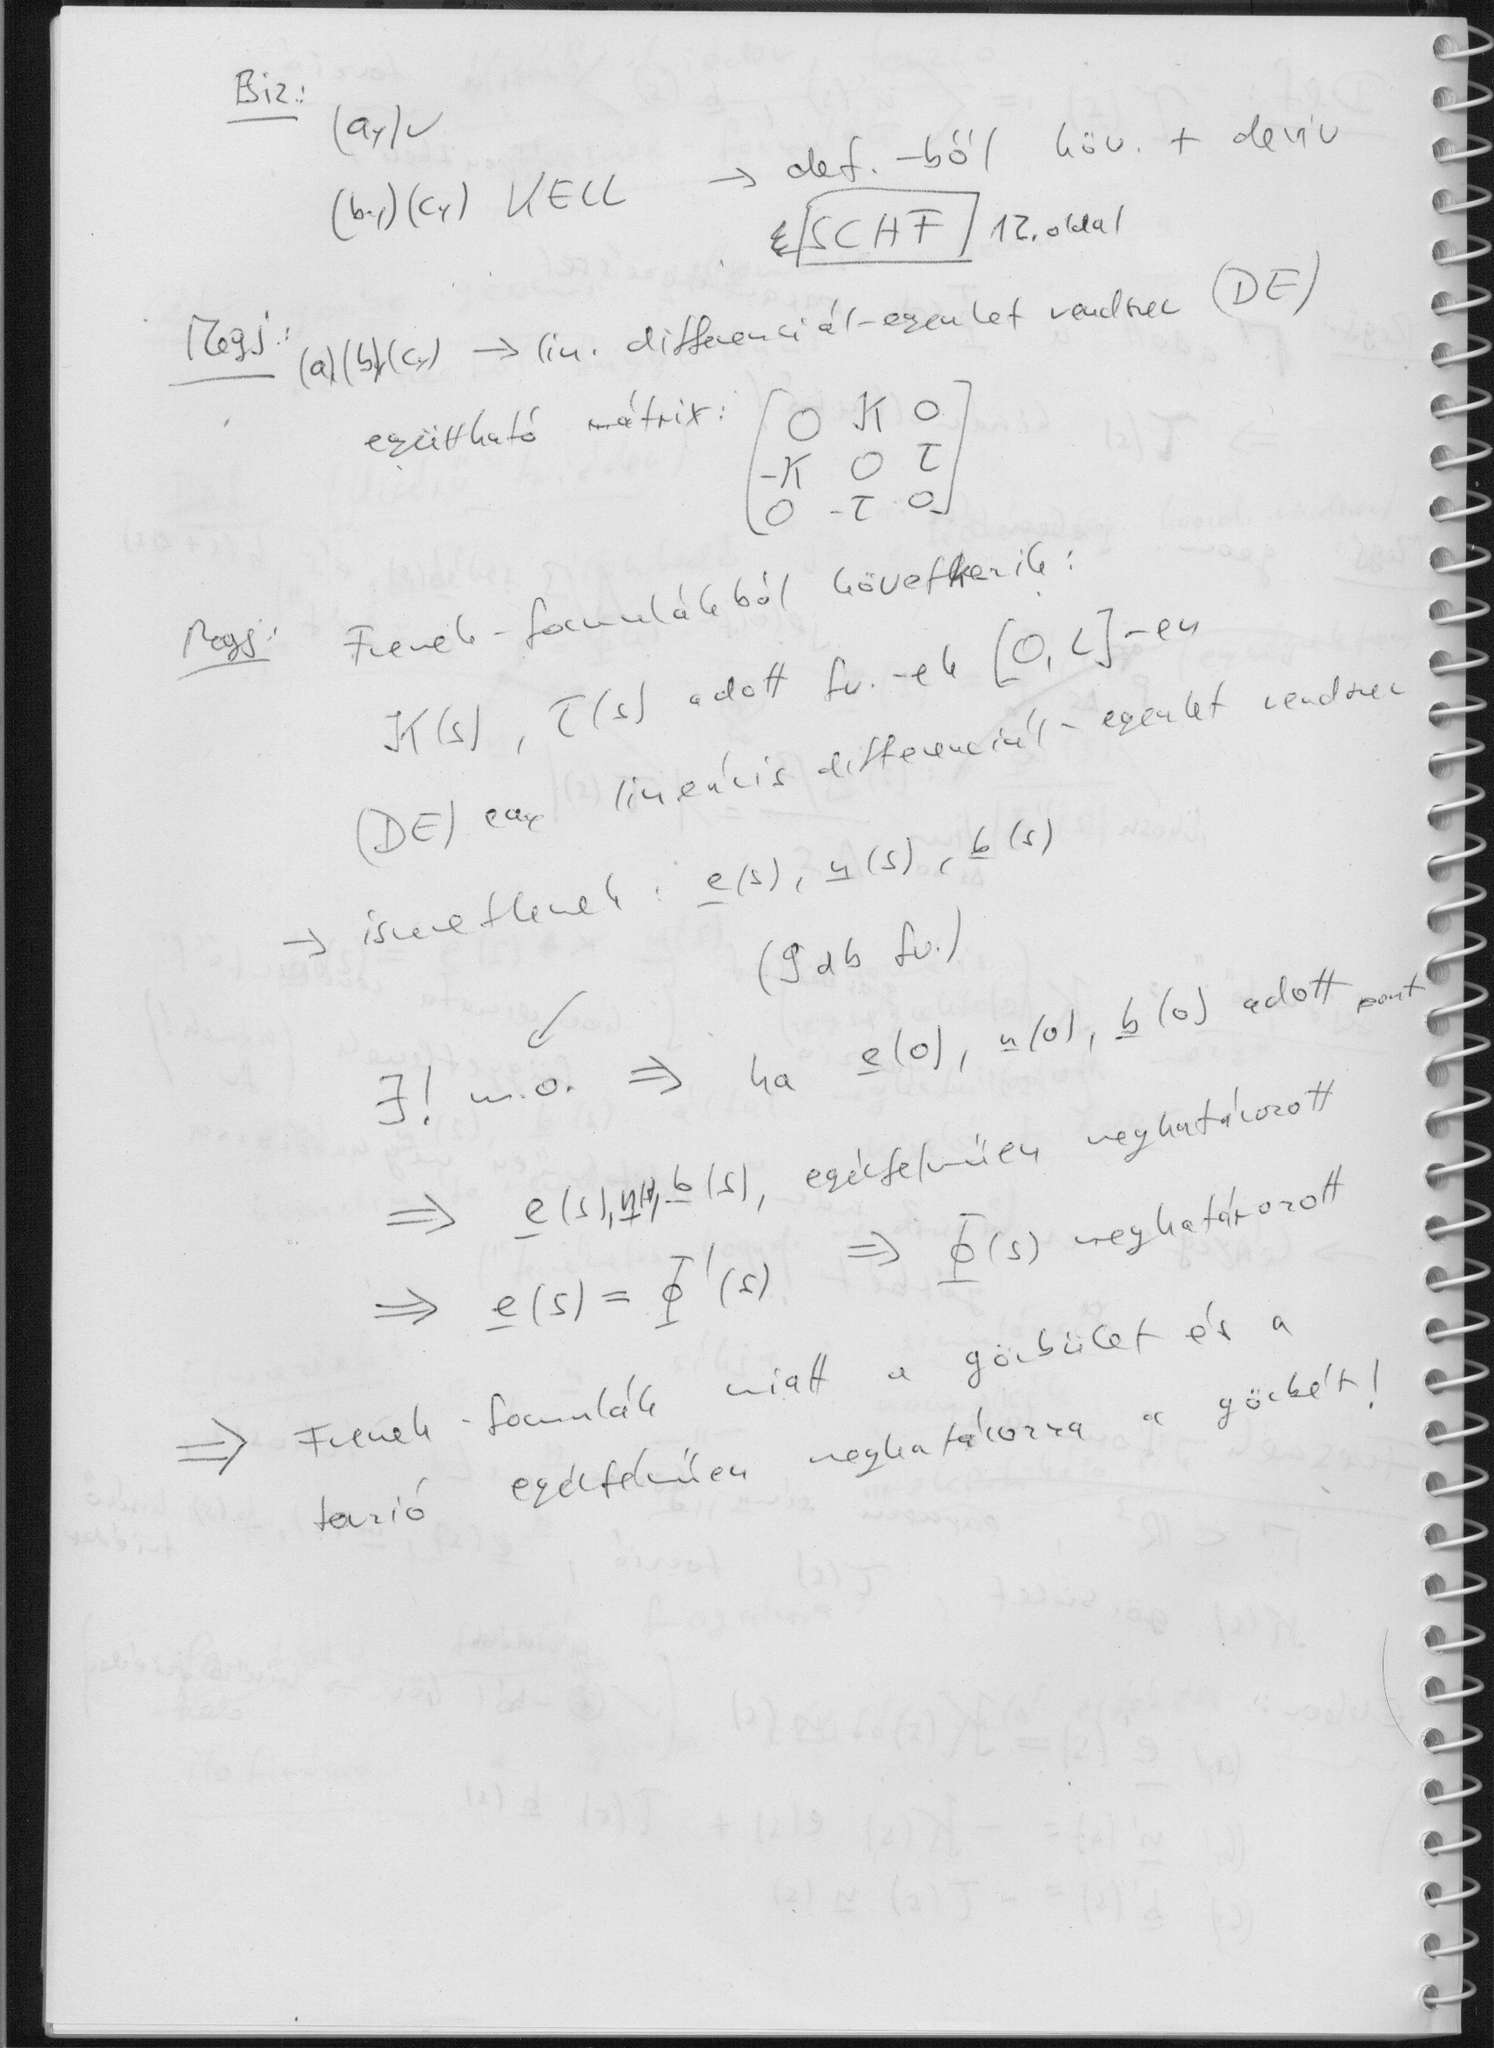 Biz.:
(a) ✓
(b) (c) KELL → def.-ből köv. + deriv
SCHF 12. oldal
Megj: (a) (b) (c) → lin. differenciál-egyenlet rendszer (DE)
együttható mátrix:
0 K 0
-K 0 τ
0 -τ 0
Megj: Frenet-formulákból következik:
K(s), τ(s) adott fv.-ek [0, L]-en
(DE) egy lineáris differenciál-egyenlet rendszer
→ ismeretlenek: e(s), n(s), b(s)
(9 db fv.)
∃! m.o. ⇒ ha e(0), n(0), b(0) adott pont
⇒ e(s), n(s), b(s), egyértelműen meghatározott
⇒ e(s) = Φ'(s) ⇒ Φ(s) meghatározott
⇒ Frenet-formulák miatt a görbület és a
torzió egyértelműen meghatározza a görbét!